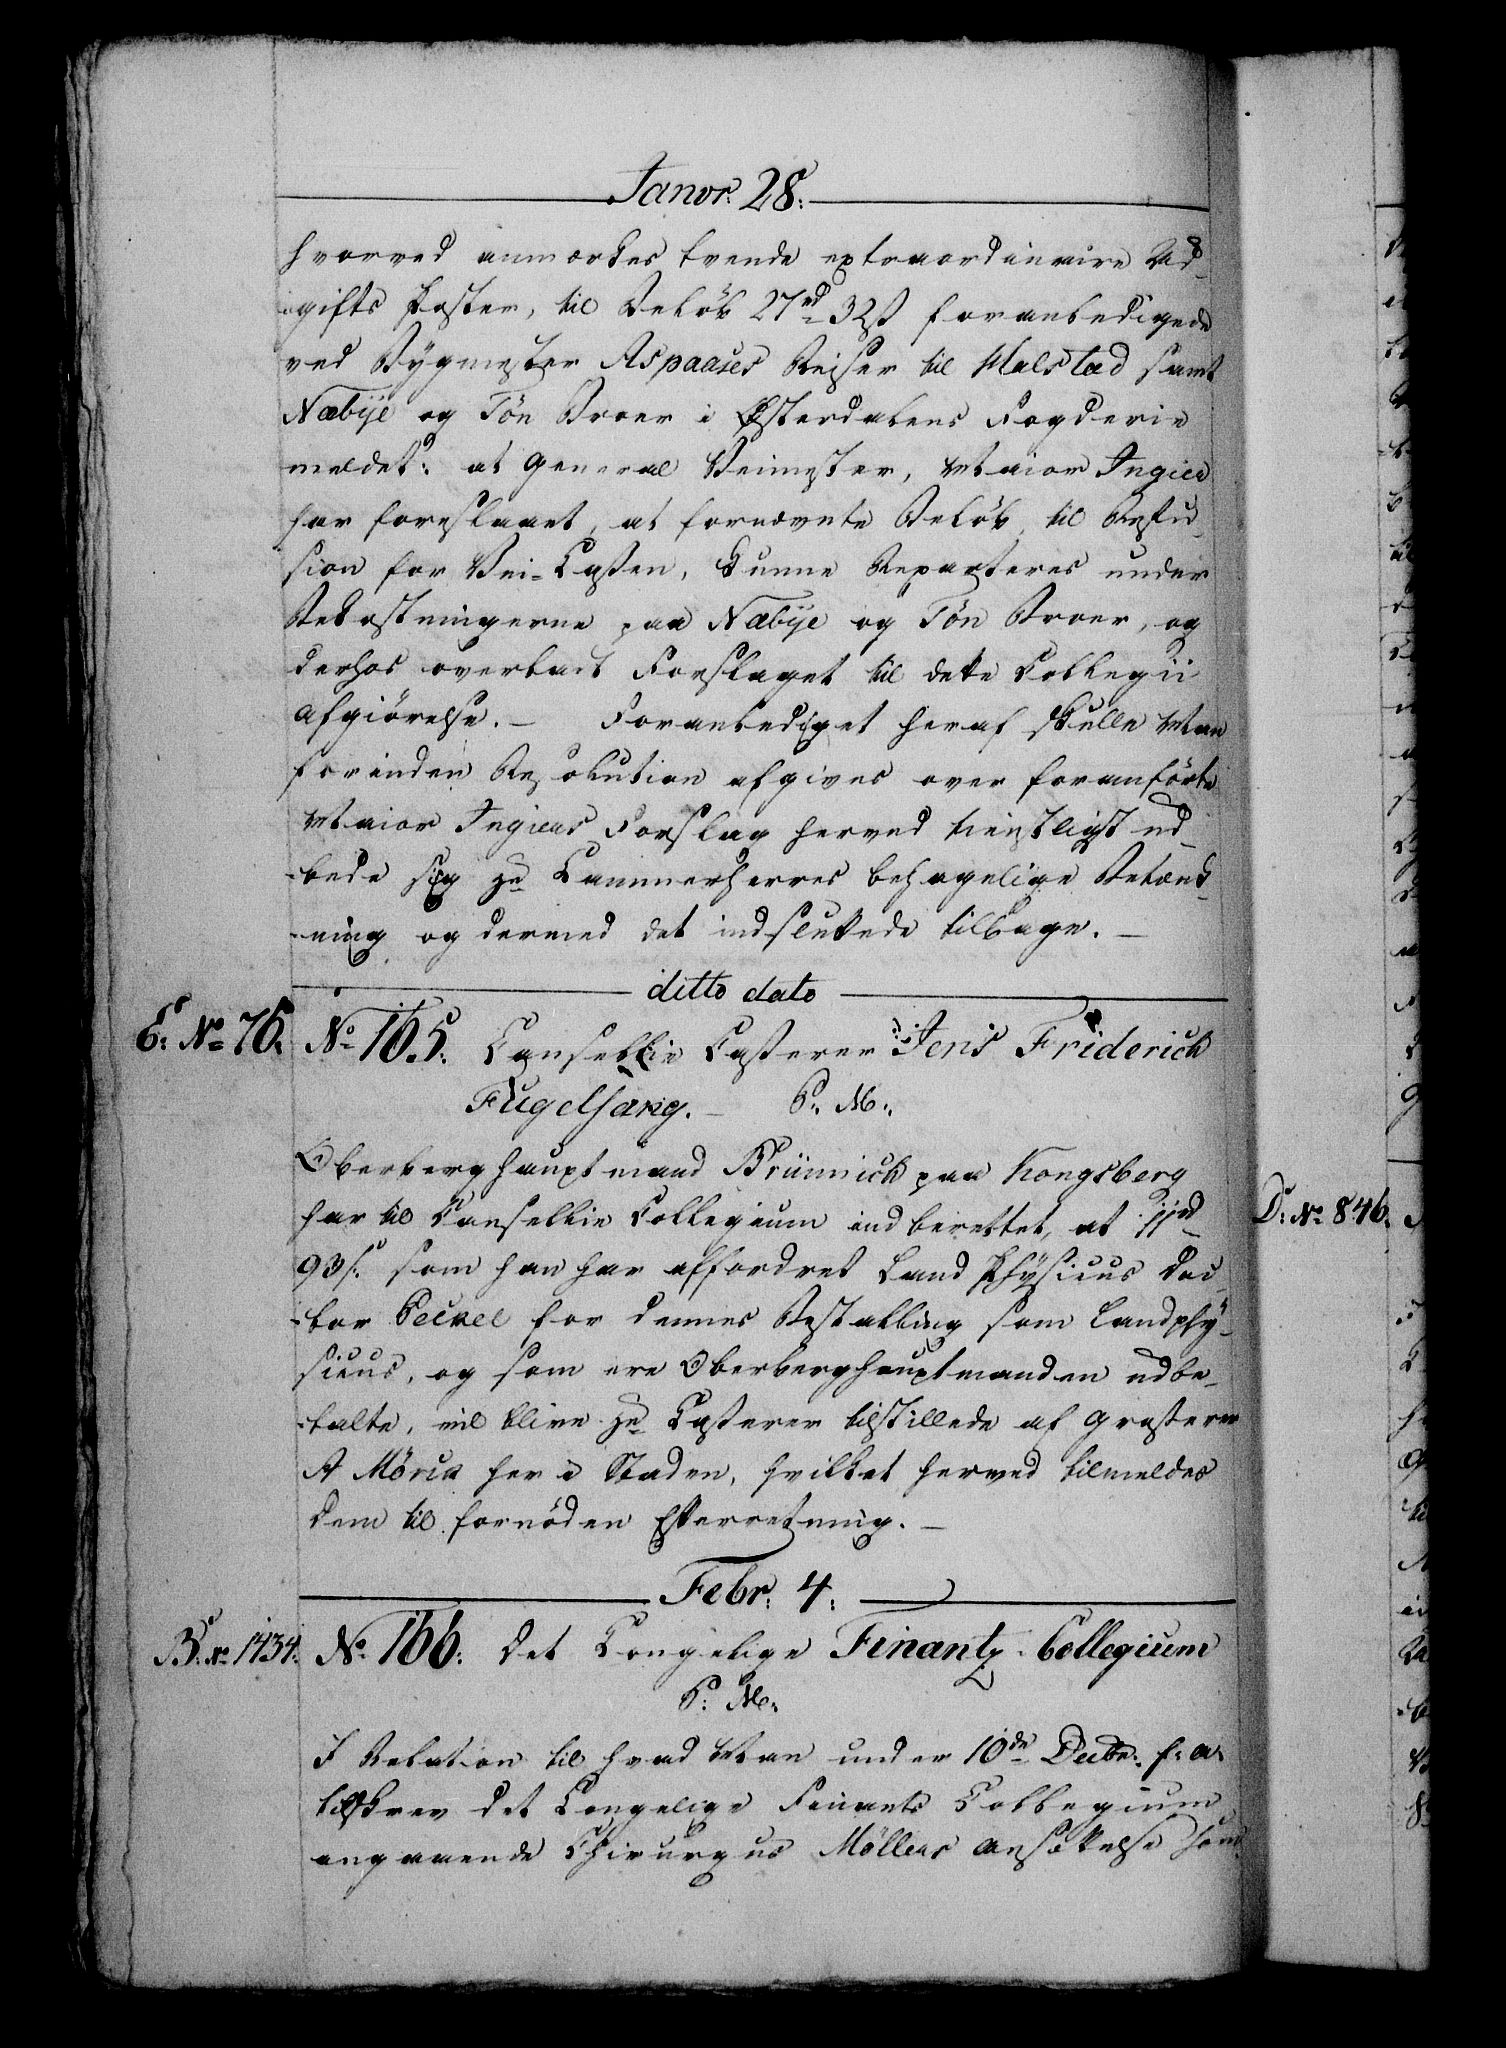 Janvr: 28:
hvorved anmærkes tvende extraordinaire Ud-
-gifts Poster, til Beløb 27rd 32s foranledigede
ved Bygmester Aspaases Reiser til Malstad samt
Næbye og Tön Broer i Østerdalens Fogderie
meldet: at General Veimester, Maior Ingier
har foreslaaet, at fornævnte Beløb, til Refu-
sion for Vei-Cassen, kunne Reparteres under
Bekostningerne paa Næbye og Tön Broer, og
derhos overladt Forslaget til dette Collegii
Afgiørelse. – Foranlediget heraf skulle Man
forinden Resolution afgives over foranførte
Maior Ingiers Forslag herved tienstligst ud-
-bede sig Hr Cammerherres behagelige Betænk-
-ning og dermed det indsluttede tilbage. –
ditto dato
E: No 76. No 165: Cancellie Casserer Jens Friderich
Fugelsang. – P: M:
Oberberghauptmand Brünnich paa Kongsberg
har til Cancellie Collegium indberettet, at 11rd
93s. som han har affordret Land Physicus Doc-
-tor Becker for dennes Bestalling som Landphy-
sicus, og som ere Oberberghauptmanden udbe-
-talte, vil blive Hr Casserer tilstillede af Grosserer
A Mörck her i Staden, hvilket herved tilmeldes
Dem til fornöden Efterretning. –
Febr: 4:
B: No 1434. No 166: Det Kongelige Finantz-Collegium
P: M:
I Relation til hvad Man under 10de Decbr: f: a:
tilskrev det Kongelige Finants Collegium
angaaende Chirurgus Möllers Ansøkelse som
D: No 846.